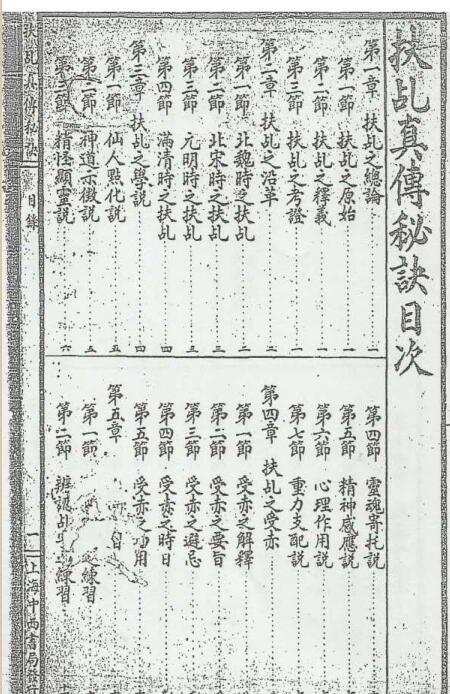 扶乩真傳秘訣目次
第一章 扶乩之總論 一
第一節 扶乩之原始 一
第二節 扶乩之釋義 一
第三節 扶乩之考證 一
第二章 扶乩之沿革 二
第一節 北魏時之扶乩 二
第二節 北宋時之扶乩 三
第三節 元明時之扶乩 三
第四節 滿清時之扶乩 四
第三章 扶乩之學說 四
第一節 仙人點化說 五
第二節 神道示微說 五
第三節 精怪顯靈說 六
第四節 靈魂寄托說
第五節 精神感應說
第六節 心理作用說
第七節 重力支配說
第四章 扶乩之受亦
第一節 受亦之解釋
第二節 受亦之要旨
第三節 受亦之避忌
第四節 受亦之時日
第五節 受亦之功用
第五章
第一節 之練習
第二節 練習
扶乩真傳秘訣 目錄 一 上海中西書局發行